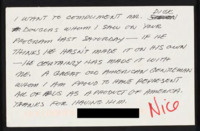 I WANT TO COMPLIMENT MR. DICK
DOUGLAS WHOM I SAW ON YOUR
PROGRAM LAST SATURDAY — IF HE
THINKS HE HASN'T MADE IT ON HIS OWN
— HE CERTAINLY HAS MADE IT WITH
ME. A GREAT OLD AMERICAN GENTLEMAN
WHOM I AM PROUD TO HAVE REPRESENT
ALL OF US AS A PRODUCT OF AMERICA.
THANKS FOR HAVING HIM.
Nice